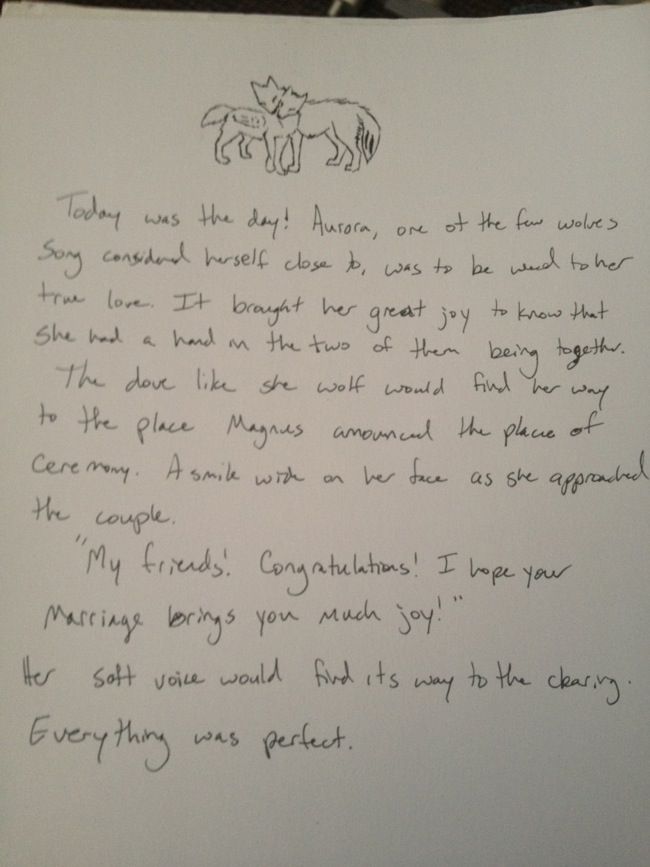 Today was the day! Aurora, one of the few wolves
Song considered herself close to, was to be wed to her
true love. It brought her great joy to know that
she had a hand in the two of them being together.
The dove like she wolf would find her way
to the place Magnus announced the place of
Ceremony. A smile wide on her face as she approached
the couple.
"My friends! Congratulations! I hope your
Marriage brings you much joy!"
Her soft voice would find its way to the clearing.
Everything was perfect.